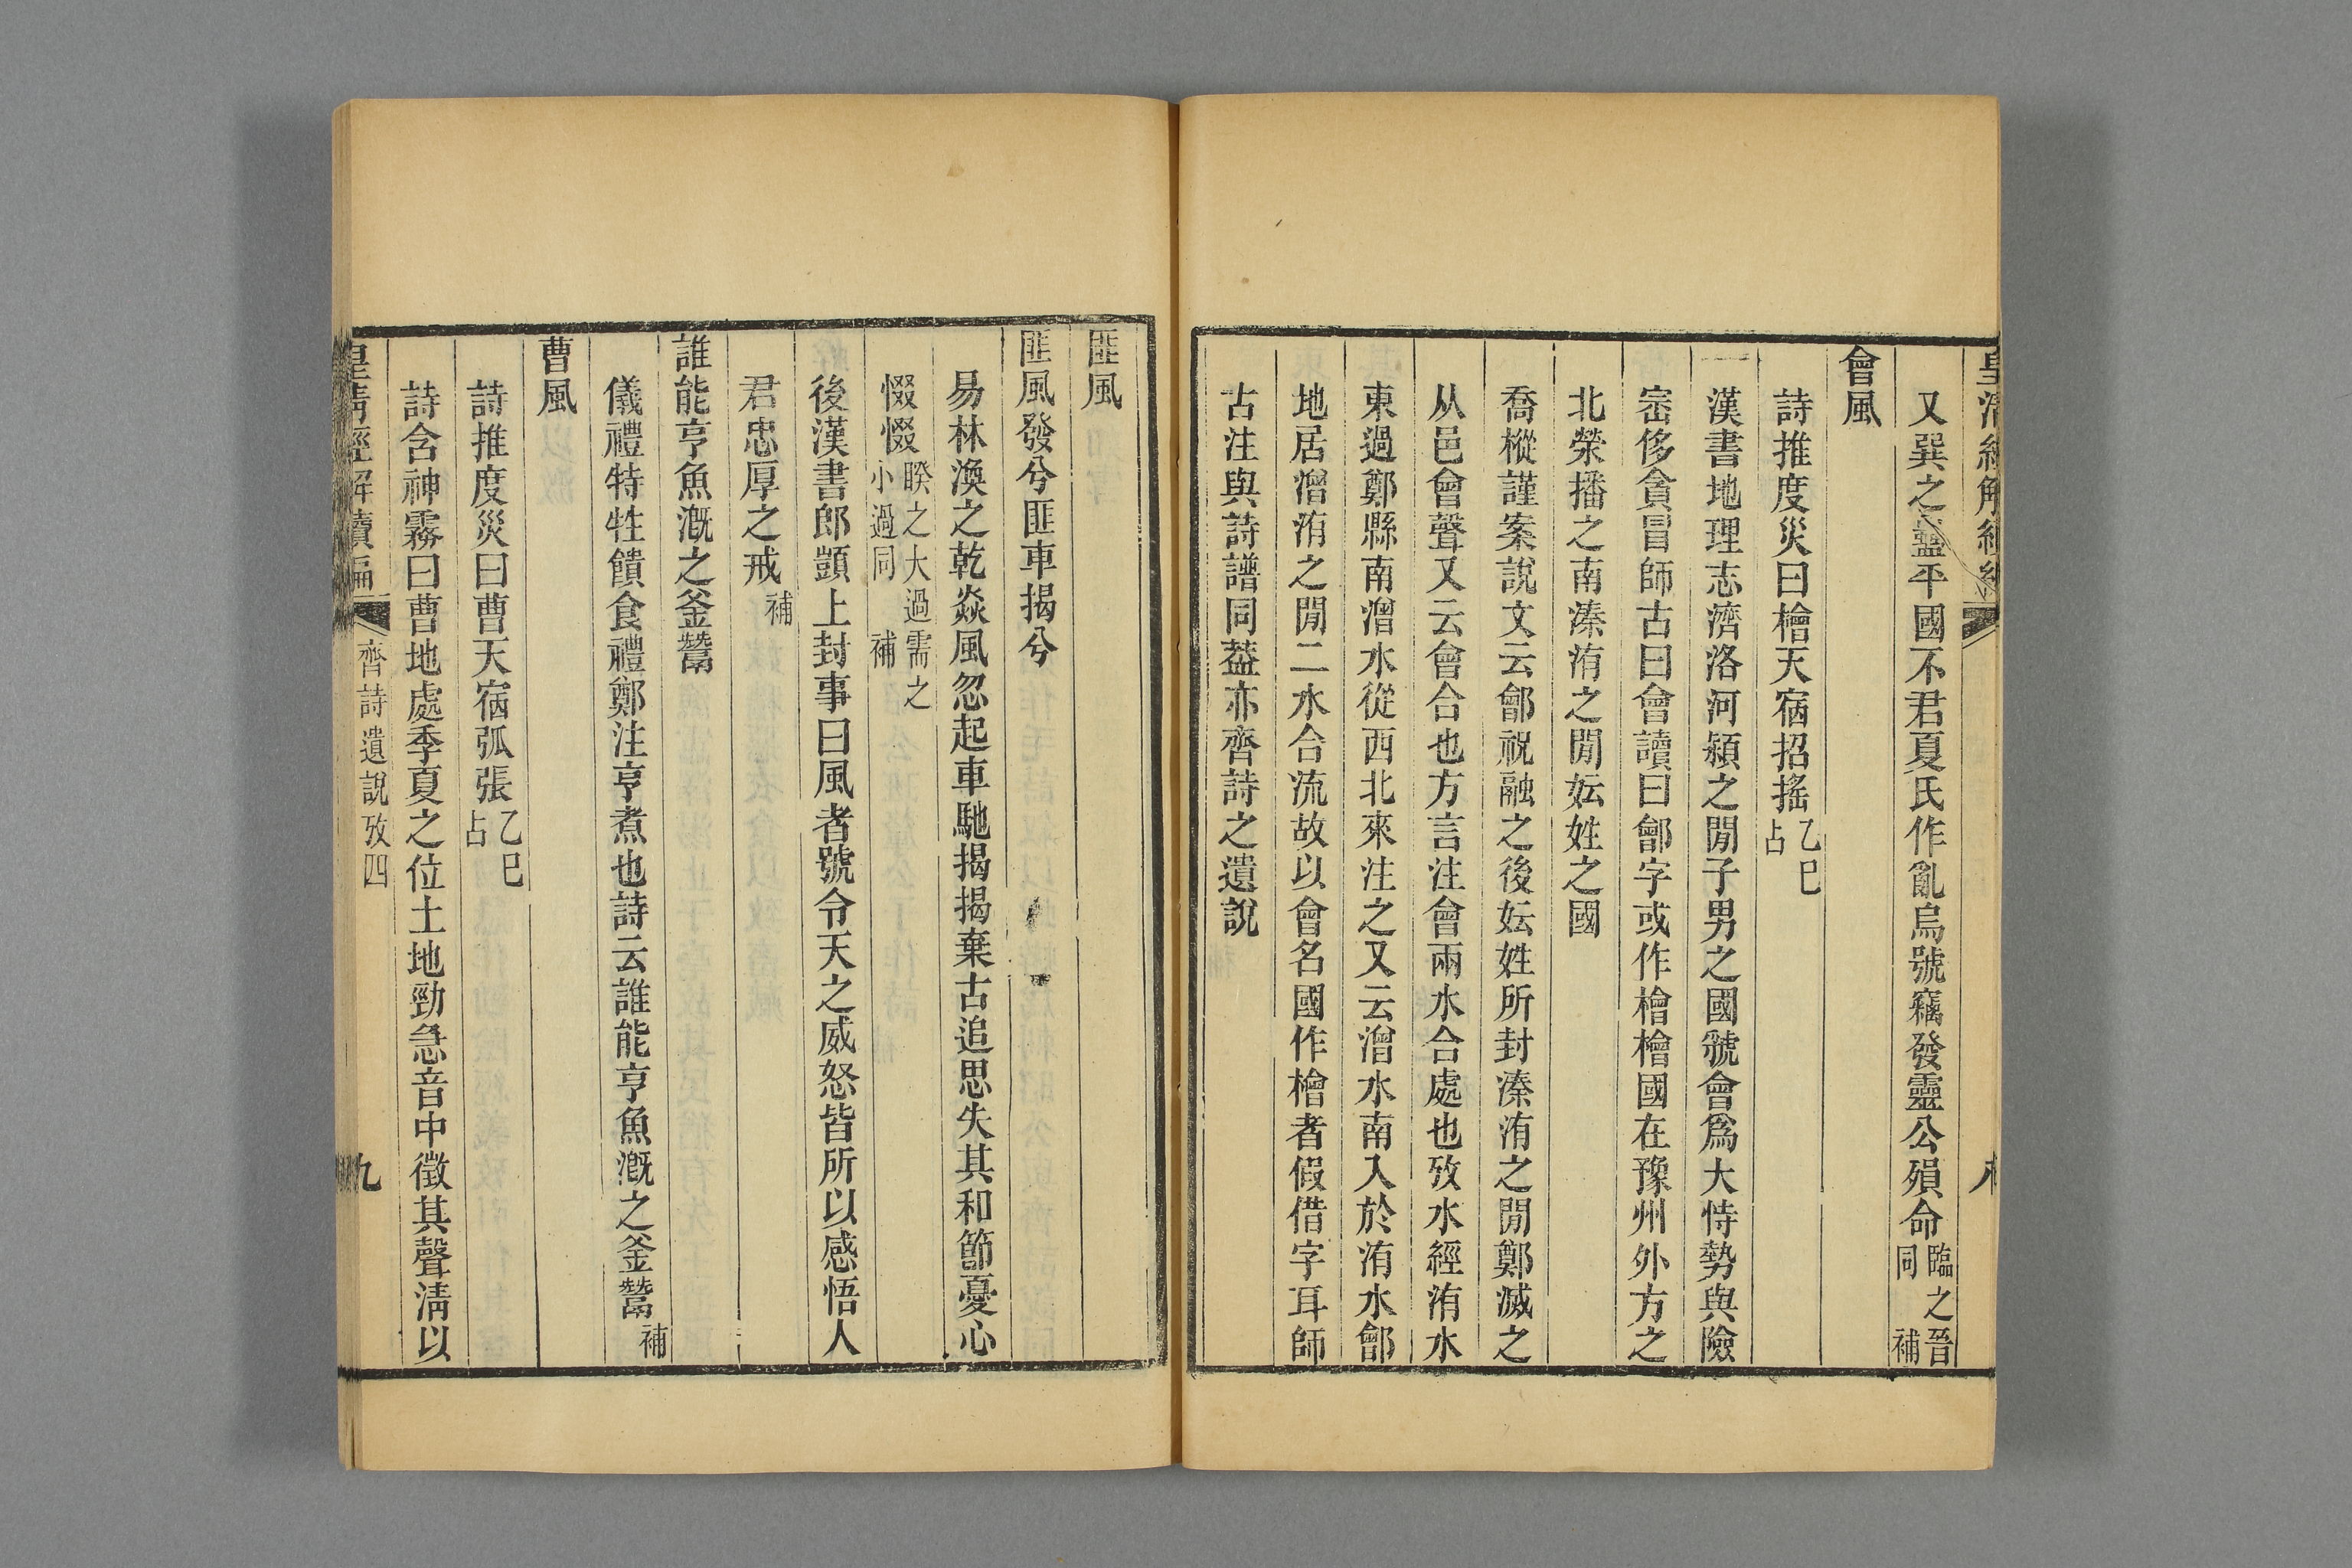 又巽之蠱平國不君夏氏作亂烏號竊發靈公殞命臨之晉同補
會風
詩推度災曰檜天宿招搖乙巳占
漢書地理志濟洛河潁之閒子男之國虢會爲大恃勢與險
崈侈貪冒師古曰會讀曰鄶字或作檜檜國在豫州外方之
北滎播之南溱洧之閒妘姓之國
喬樅謹案說文云鄶祝融之後妘姓所封溱洧之閒鄭滅之
从邑會聲又云會合也方言注會兩水合處也攷水經洧水
東過鄭縣南潧水從西北來注之又云潧水南入於洧水鄶
地居潧洧之閒二水合流故以會名國作檜者假借字耳師
古注與詩譜同葢亦齊詩之遺說
匪風
匪風發兮匪車揭兮
易林渙之乾焱風忽起車馳揭揭棄古追思失其和節憂心
惙惙睽之大過需之小過同補
後漢書郎顗上封事曰風者號令天之威怒皆所以感悟人
君忠厚之戒補
誰能亨魚漑之釜鬵
儀禮特牲饋食禮鄭注亨煮也詩云誰能亨魚漑之釜鬵補
曹風
詩推度災曰曹天宿弧張乙巳占
詩含神霧曰曹地處季夏之位土地勁急音中徵其聲淸以
皇淸經解續編
齊詩遺說攷四
九